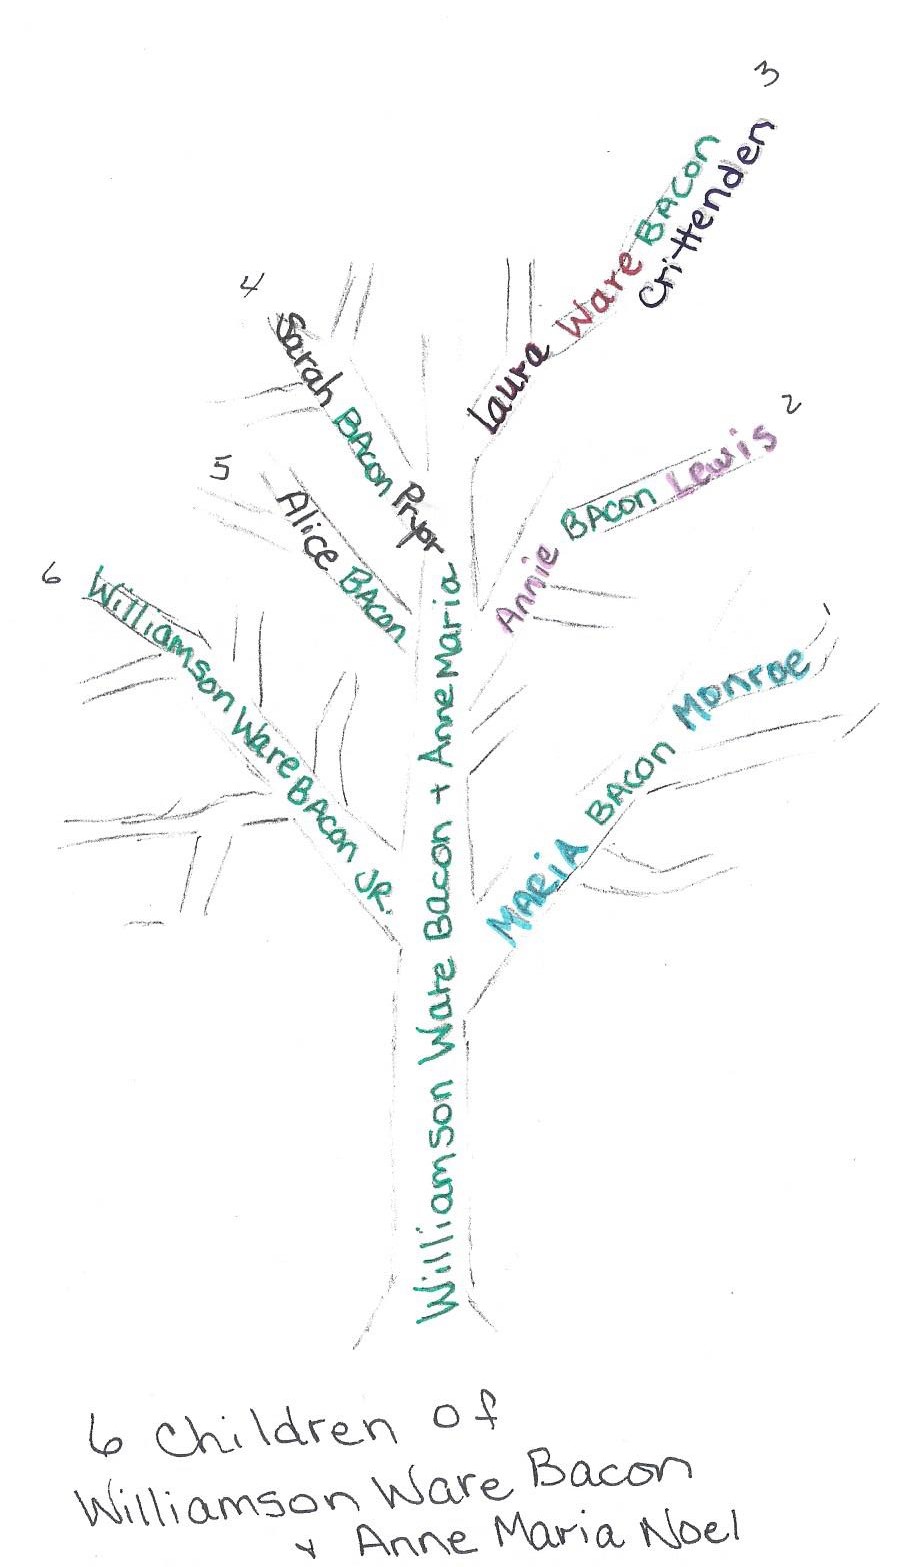 3
Laura Ware BACON
Crittenden
4
Sarah BACON Pryor
2
Annie BACON Lewis
5
Alice BACON
6
Williamson Ware BACON JR.
1
MARIA BACON Monroe
Williamson Ware Bacon + Anne Maria
6 Children of
Williamson Ware Bacon
+ Anne Maria Noel